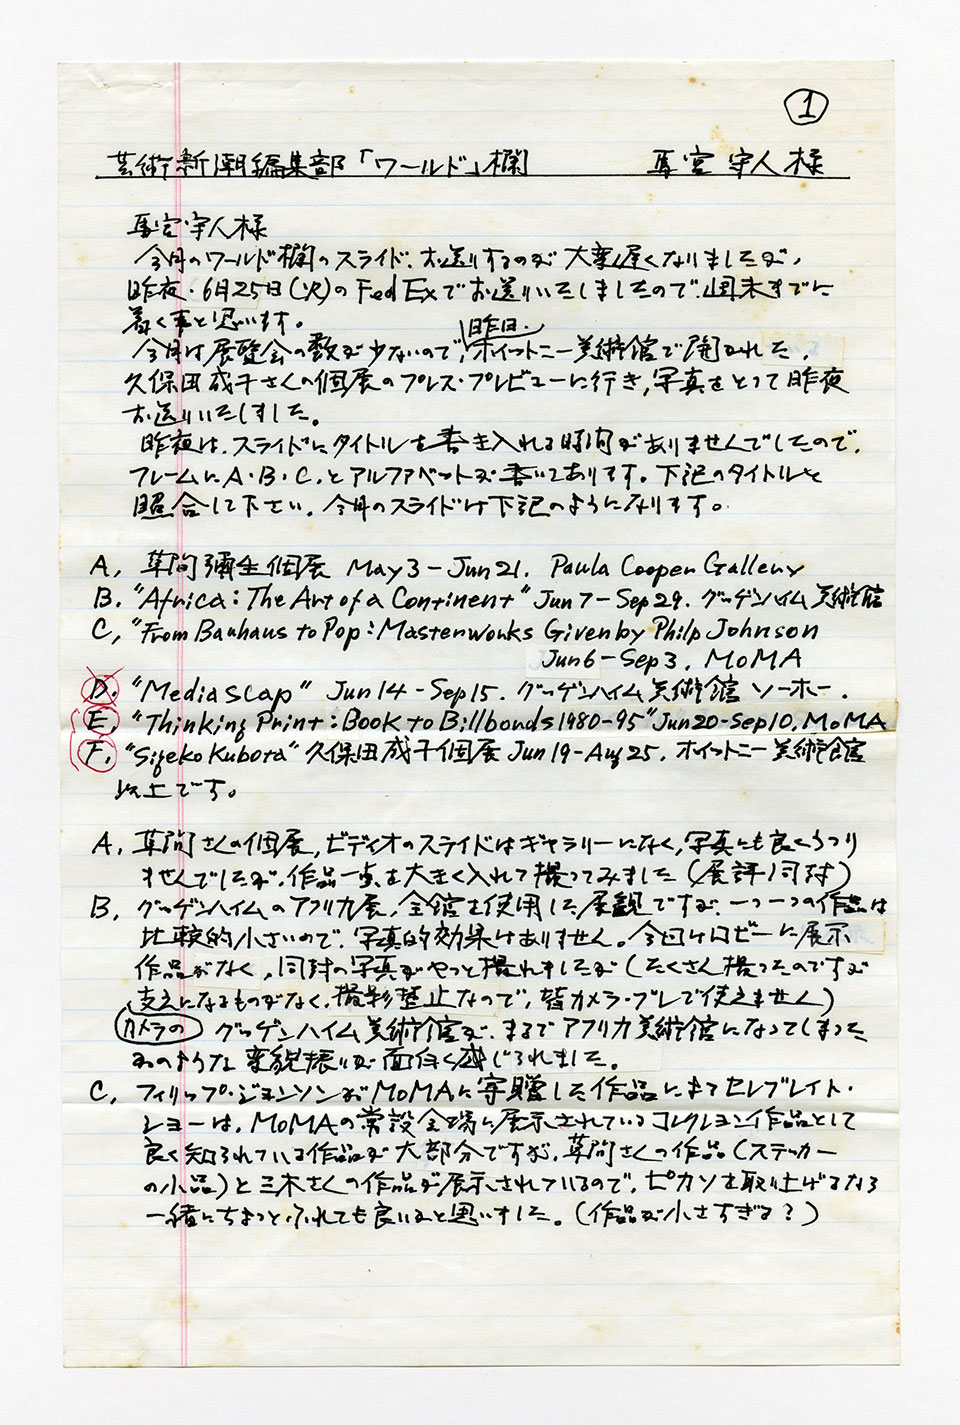 1
芸術新潮編集部「ワールド」欄 馬宮守人様
馬宮守人様
今月のワールド欄のスライド、お送りするのが大変遅くなりましたが、
昨夜・6月25日(火)のFedExでお送りいたしましたので、週末までに
着く事と思います。
昨日、
今月は展覧会の数が少ないので、ホイットニー美術館で開かれた、
久保田成子さんの個展のプレス・プレビューに行き、写真をとって昨夜
お送りいたしました。
昨夜は、スライドにタイトルを書き入れる時間がありませんでしたので、
フレームにA・B・C、とアルファベットが書いてあります。下記のタイトルと
照合して下さい。今月のスライドは下記のようになります。
A, 草間彌生個展 May 3 - Jun 21. Paula Cooper Gallery
B. "Africa: The Art of a Continent" Jun 7 - Sep 29. グッゲンハイム美術館
C, "From Bauhaus to Pop: Masterworks Given by Philp Johnson
Jun 6 - Sep 3. MoMA
D. "Mediascap" Jun 14 - Sep 15. グッゲンハイム美術館 ソーホー.
E. "Thinking Print: Book to Billbonds 1980-95" Jun 20 - Sep 10. MoMA
F. "Sigeko Kubota" 久保田成子個展 Jun 19 - Aug 25. ホイットニー美術館
以上です。
A, 草間さんの個展、ビディオのスライドはギャラリーになく、写真にも良くうつり
ませんでしたが、作品一点を大きく入れて撮ってみました(展評同封)
B, グッゲンハイムのアフリカ展、全館を使用した展観ですが、一つ一つの作品は
比較的小さいので、写真的効果はありません。今回はロビーに展示
作品がなく、同封の写真がやっと撮れましたが(たくさん撮ったのですが
支えになるものがなく、撮影禁止なので、皆カメラ・ブレで使えません)
カメラの グッゲンハイム美術館が、まるでアフリカ美術館になってしまった
かのような変貌振りが面白く感じられました。
C, フィリップ・ジョンソンがMoMAに寄贈した作品によるセレブレイト・
ショーは、MoMAの常設会場に展示されているコレクション作品として
良く知られている作品が大部分ですが、草間さんの作品(ステッカー
の小品)と三木さんの作品が展示されているので、ピカソを取り上げるなら
一緒にちょっとふれても良いかと思いました。(作品が小さすぎる?)